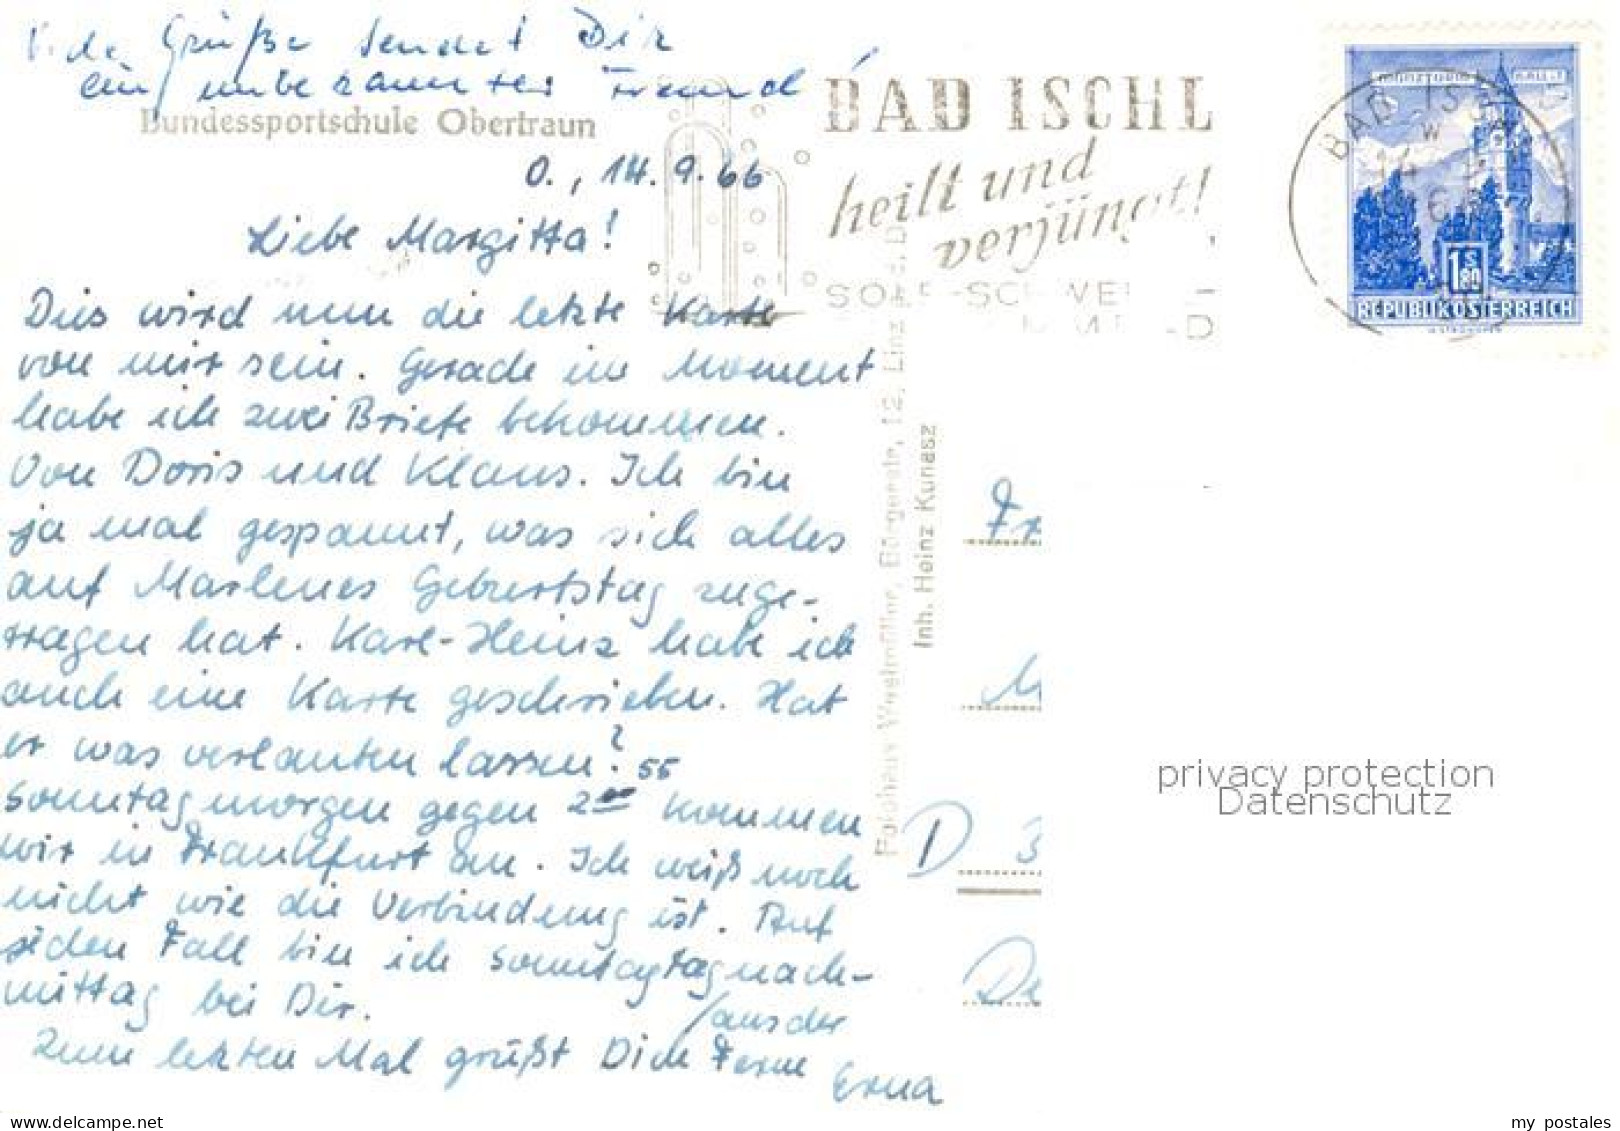 Viele Grüße sendet Dir
ein unbekannter Freund!
Bundessportschule Obertraun
O., 14.9.66
Liebe Margitta!
Dies wird nun die letzte Karte
von mir sein. Gerade im Moment
habe ich zwei Briefe bekommen.
Von Doris und Klaus. Ich bin
ja mal gespannt, was sich alles
auf Marlenes Geburtstag zuge-
tragen hat. Karl-Heinz habe ich
auch eine Karte geschrieben. Hat
er was verlauten lassen?
Sonntagmorgen gegen 2 55 kommen
wir in Frankfurt an. Ich weiß noch
nicht wie die Verbindung ist. Auf
jeden Fall bin ich Sonntagtagnach-
mittag bei Dir.
Zum letzten Mal grüßt Dich /aus der
Ferne Erna
BAD ISCHL
heilt und
verjüngt!
BAD IS
14
1 S 80
REPUBLIK ÖSTERREICH
Inh. Heinz Kunasz
Fr
M
D 3
De
privacy protection
Datenschutz
my postales